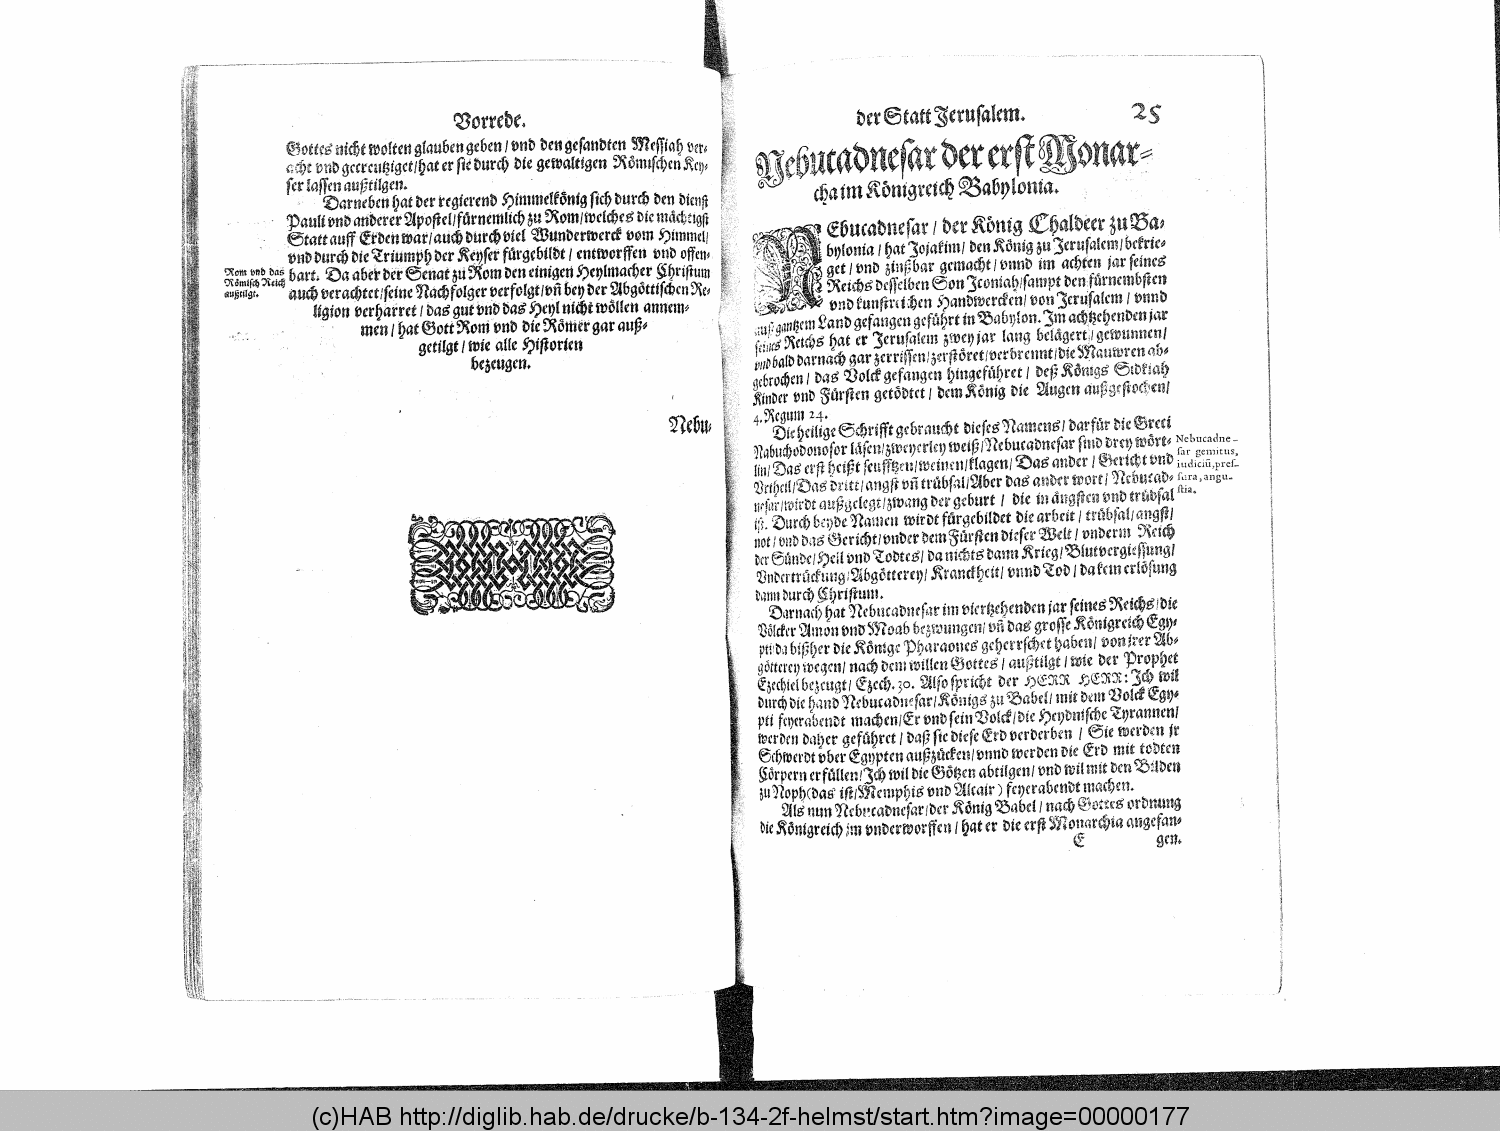 Vorrede.
Gottes nicht wolten glauben geben / vnd den gesandten Messiah ver-
acht vnd gecreutziget / hat er sie durch die gewaltigen Römischen Key-
ser lassen außtilgen.
Darneben hat der regierend Himmelkönig sich durch den dienst
Pauli vnd anderer Apostel / fürnemlich zu Rom / welches die mächtigst
Statt auff Erden war / auch durch viel Wunderwerck vom Himmel /
vnd durch die Triumph der Keyser fürgebildt / entworffen vnd offen-
bart. Da aber der Senat zu Rom den einigen Heylmacher Christum
auch verachtet / seine Nachfolger verfolgt / vñ bey der Abgöttischen Re-
ligion verharret / das gut vnd das Heyl nicht wöllen annem-
men / hat Gott Rom vnd die Römer gar auß-
getilgt / wie alle Historien
bezeugen.
Rom vnd das
Römisch Reich
außtilgt.
Nebu-
der Statt Jerusalem. 25
Nebucadnesar der erst Monar-
cha im Königreich Babylonia.
NEbucadnesar / der König Chaldeer zu Ba-
bylonia / hat Jojakim / den König zu Jerusalem / bekrie-
get / vnd zinßbar gemacht / vnnd im achten jar seines
Reichs desselben Son Jconiah / sampt den fürnembsten
vnd kunstreichen Handwercken / von Jerusalem / vnnd
auß gantzem Land gefangen geführt in Babylon. Im achtzehenden jar
seines Reichs hat er Jerusalem zwey jar lang belägert / gewunnen /
vnd bald darnach gar zerrissen / zerstöret / verbrennt / die Mauwren ab-
gebrochen / das Volck gefangen hingeführet / deß Königs Sidkiah
Kinder vnd Fürsten getödtet / dem König die Augen außgestochen /
4. Regum 24.
Die heilige Schrifft gebraucht dieses Namens / darfür die Greci
Nabuchodonosor läsen / zweyerley weiß / Nebucadnesar sind drey wört-
lin / Das erst heißt seufftzen / weinen / klagen / Das ander / Gericht vnd
Vrtheil / Das dritt / angst vñ trübsal / Aber das ander wort / Nebucad-
nesar / wirdt außgelegt / zwang der geburt / die in ängsten vnd trübsal
ist. Durch beyde Namen wirdt fürgebildet die arbeit / trübsal / angst /
not / vnd das Gericht / vnder dem Fürsten dieser Welt / vnderm Reich
der Sünde / Heil vnd Todtes / da nichts dann Krieg / Blutvergiessung /
Vndertrückung / Abgötterey / Kranckheit / vnnd Tod / da kein erlösung
dann durch Christum.
Darnach hat Nebucadnesar im viertzehenden jar seines Reichs / die
Völcker Amon vnd Moab bezwungen / vñ das grosse Königreich Egy-
pti / da bißher die Könige Pharaones geherrschet haben / von jrer Ab-
götterey wegen / nach dem willen Gottes / außtilgt / wie der Prophet
Ezechiel bezeugt / Ezech. 30. Also spricht der HERR HERR: Ich wil
durch die hand Nebucadnesar / Königs zu Babel / mit dem Volck Egy-
pti feyerabendt machen / Er vnd sein Volck / die Heydnische Tyrannen /
werden daher geführet / daß sie diese Erd verderben / Sie werden jr
Schwerdt vber Egypten außzücken / vnnd werden die Erd mit todten
Cörpern erfüllen / Ich wil die Götzen abtilgen / vnd wil mit den Bilden
zu Noph (das ist / Memphis vnd Alcair) feyerabendt machen.
Als nun Nebucadnesar / der König Babel / nach Gottes ordnung
die Königreich jm vnderworffen / hat er die erst Monarchia angefan-
E gen.
Nebucadne-
sar gemitus,
iudiciũ, pres-
sura, angu-
stia.
(c)HAB http://diglib.hab.de/drucke/b-134-2f-helmst/start.htm?image=00000177